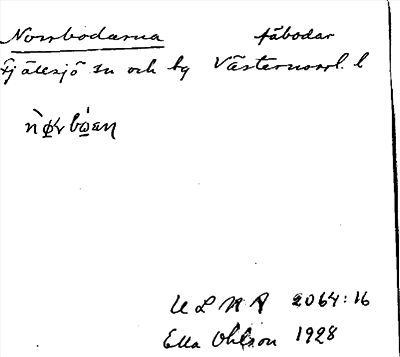 Norrbodarna fäbodar
Fjälsjö sn och by Västernorrl. l
nòrbóan
ULMA 2064:16
Ella Ohlson 1928